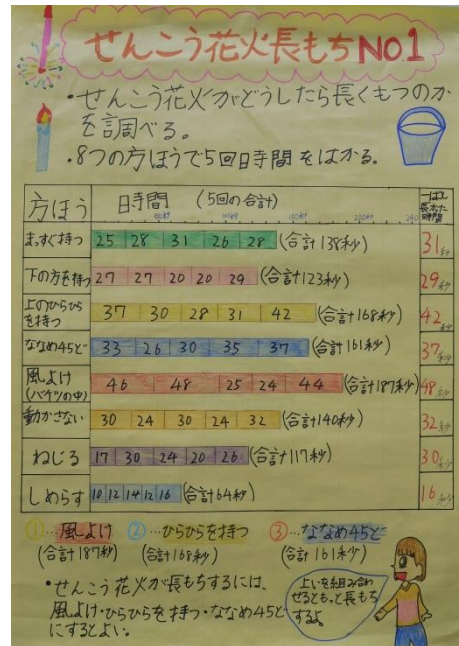 せんこう花火長もちNO.1
・せんこう花火がどうしたら長くもつのか
を調べる。
・8つの方ほうで5回時間をはかる。
方ほう 時間 (5回の合計) 一ばん長かった時間
50秒 100秒 150秒 200秒 240
まっすぐ持つ 25 28 31 26 28 (合計138秒) 31秒
下の方を持つ 27 27 20 20 29 (合計123秒) 29秒
上のひらひら
を持つ 37 30 28 31 42 (合計168秒) 42秒
ななめ45ど 33 26 30 35 37 (合計161秒) 37秒
風よけ
(バケツの中) 46 48 25 24 44 (合計187秒) 48秒
動かさない 30 24 30 24 32 (合計140秒) 32秒
ねじる 17 30 24 20 26 (合計117秒) 30秒
しめらす 10 12 14 12 16 (合計64秒) 16秒
①…風よけ ②…ひらひらを持つ ③…ななめ45ど
(合計187秒) (合計168秒) (合計161秒)
・せんこう花火が長もちするには、
風よけ・ひらひらを持つ・ななめ45ど
にするとよい。
上いを組み合わ
せるともっと長もち
するよ